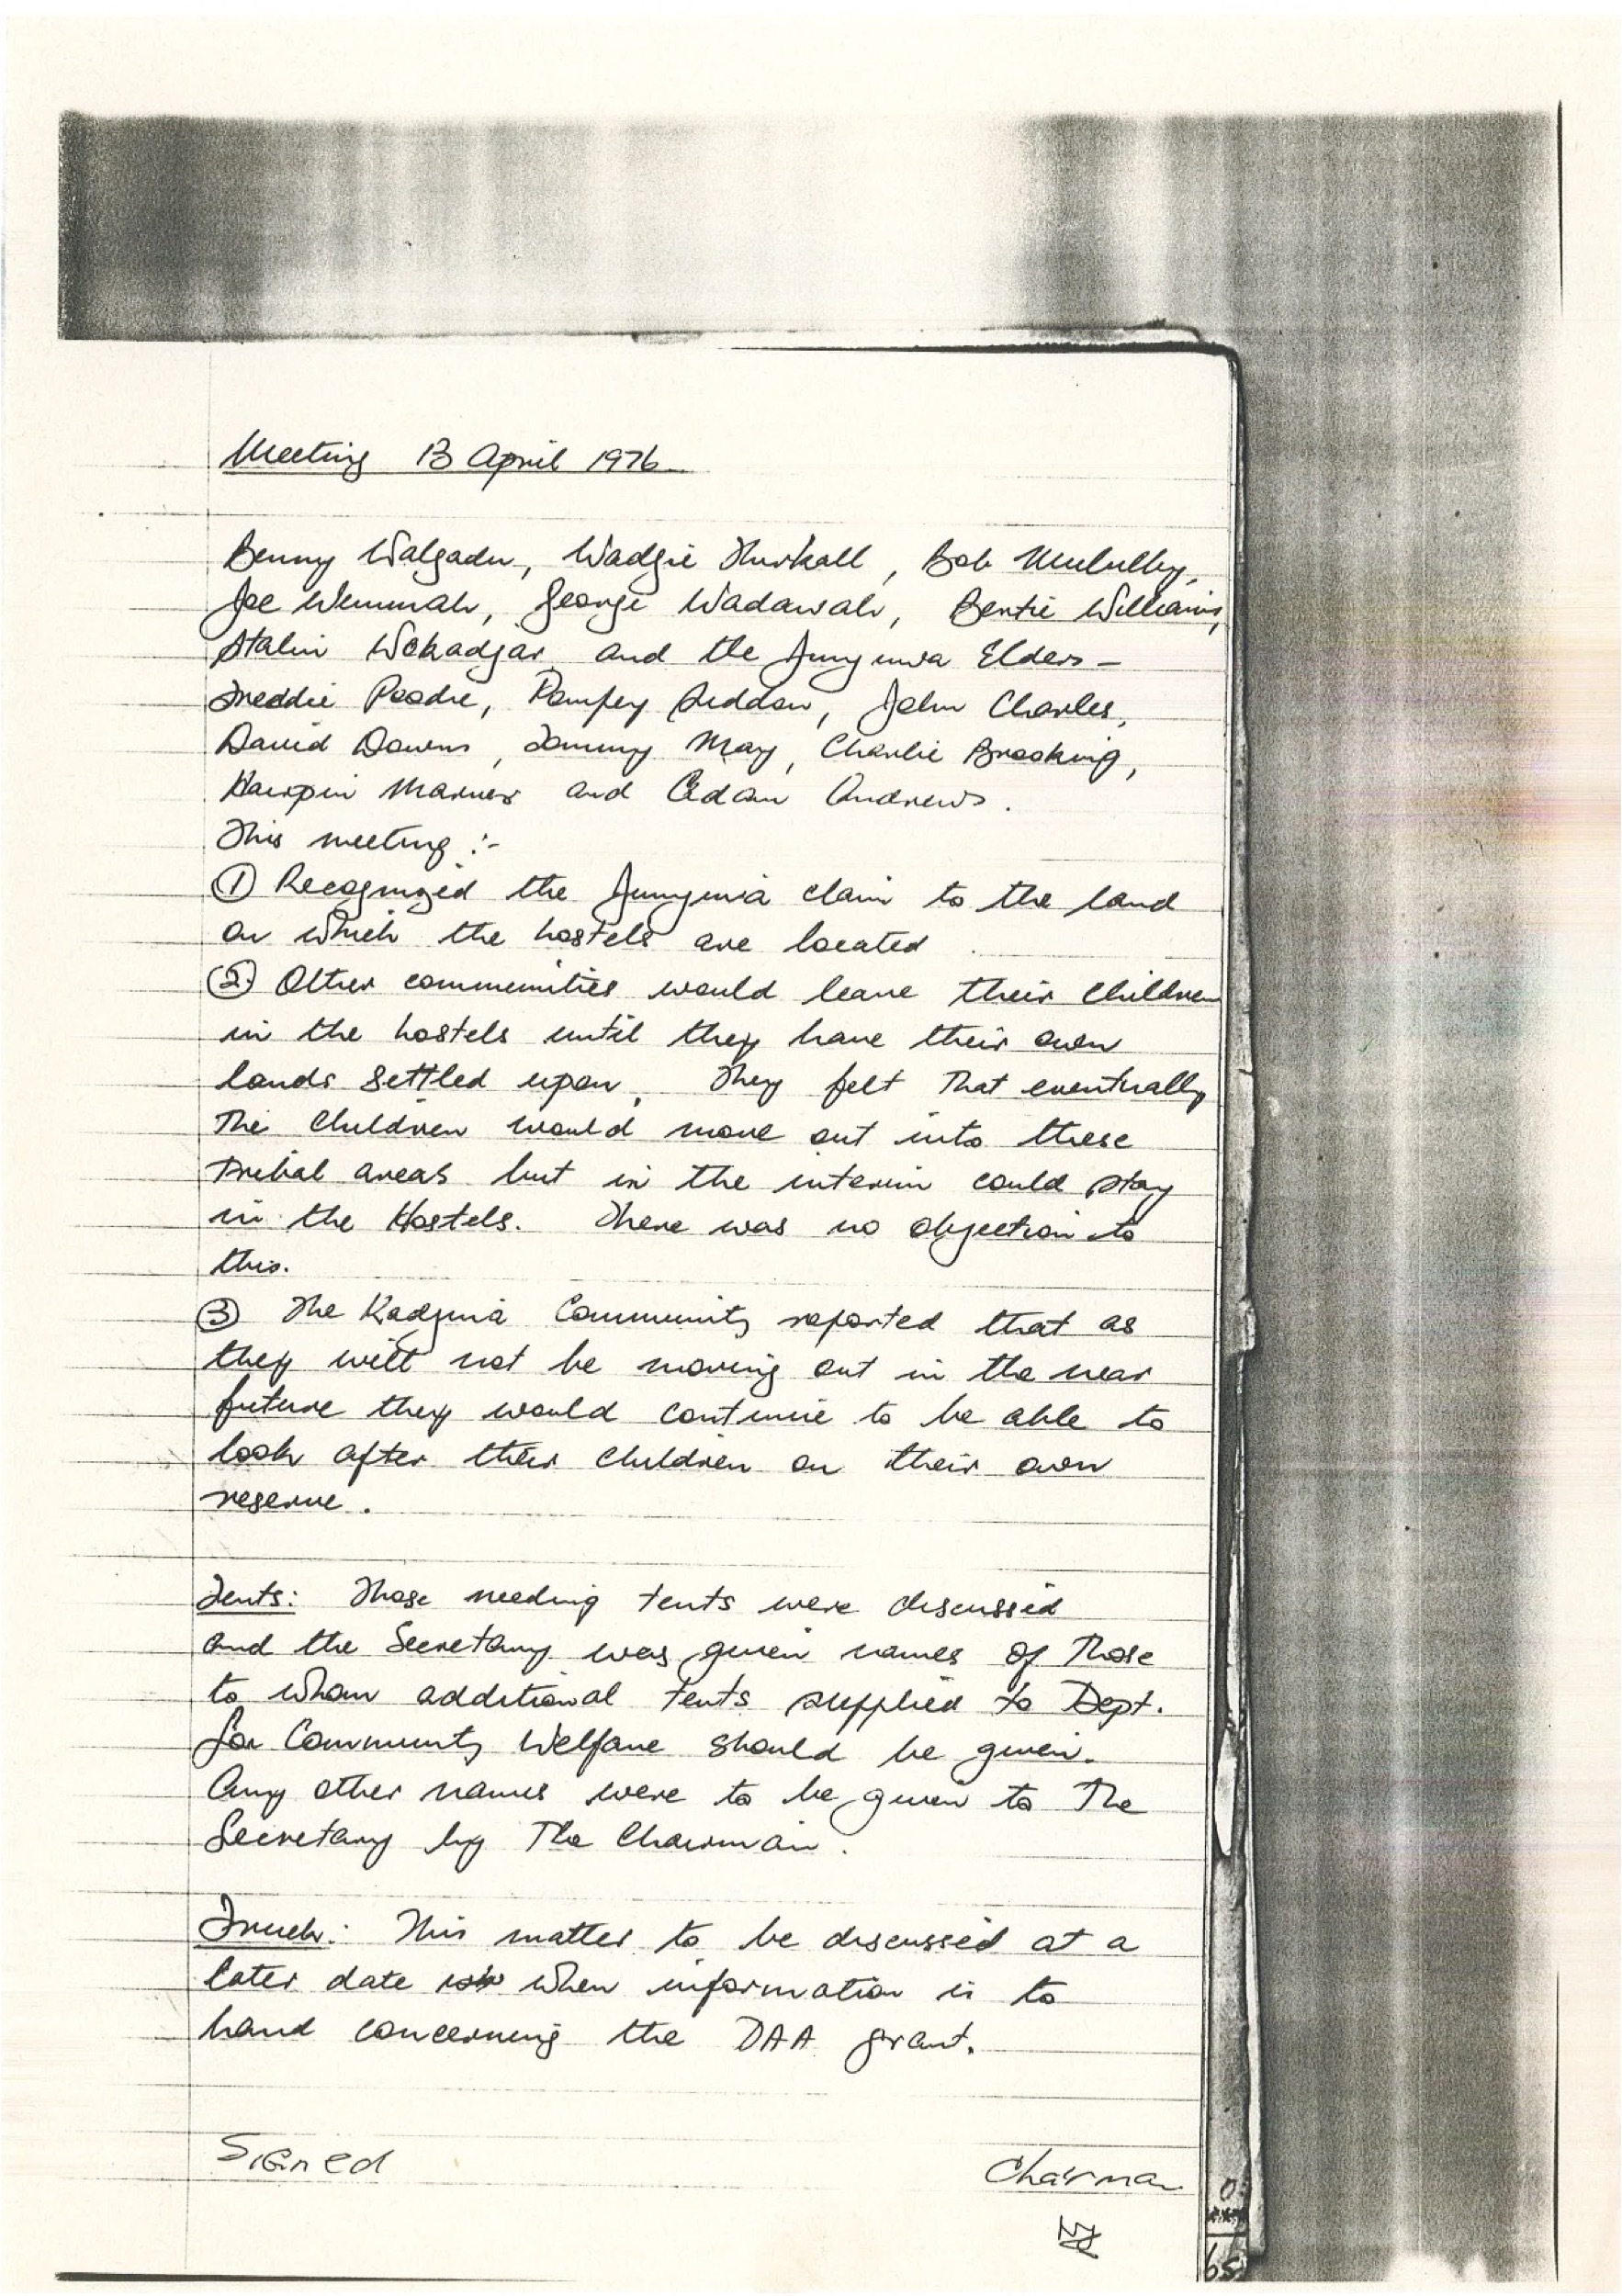 Meeting 13 April 1976
Benny Walgadu, Wadgie Thirkall, Bob Mululby,
Joe Wemmah, George Wadawah, Bertie Williams,
Stalin Wokadgar and the Junjuwa Elders -
Freddie Poodre, Pompey Siddon, John Charles,
David Downs, Tommy May, Charlie Brooking,
Hairpin Marner and Adam Andrews.
This meeting :-
① Recognized the Junjuwa claim to the land
on which the hostels are located.
② Other communities would leave their children
in the hostels until they have their own
lands settled upon. They felt that eventually
the children would move out into these
tribal areas but in the interim could stay
in the Hostels. There was no objection to
this.
③ The Kadjina Community reported that as
they will not be moving out in the near
future they would continue to be able to
look after their children on their own
reserve.
Tents: Those needing tents were discussed
and the Secretary was given names of those
to whom additional tents supplied to Dept.
for Community Welfare should be given.
Any other names were to be given to the
Secretary by the Chairman.
Truck: This matter to be discussed at a
later date when information is to
hand concerning the DAA grant.
Signed Chairman